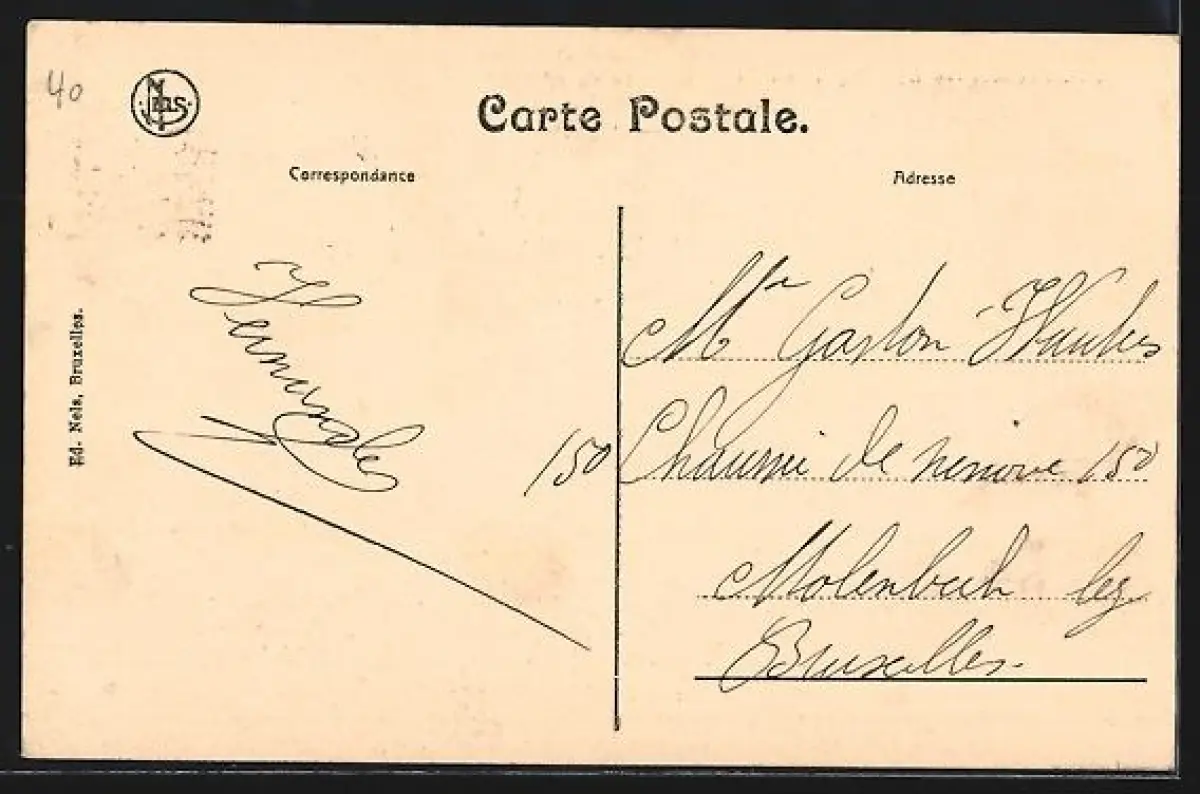 40
Nels
Carte Postale.
Correspondance
Adresse
Ed. Nels, Bruxelles.
Mr Gaston
150
Chaussée de ninove 150
Molenbeek lez
Bruxelles.